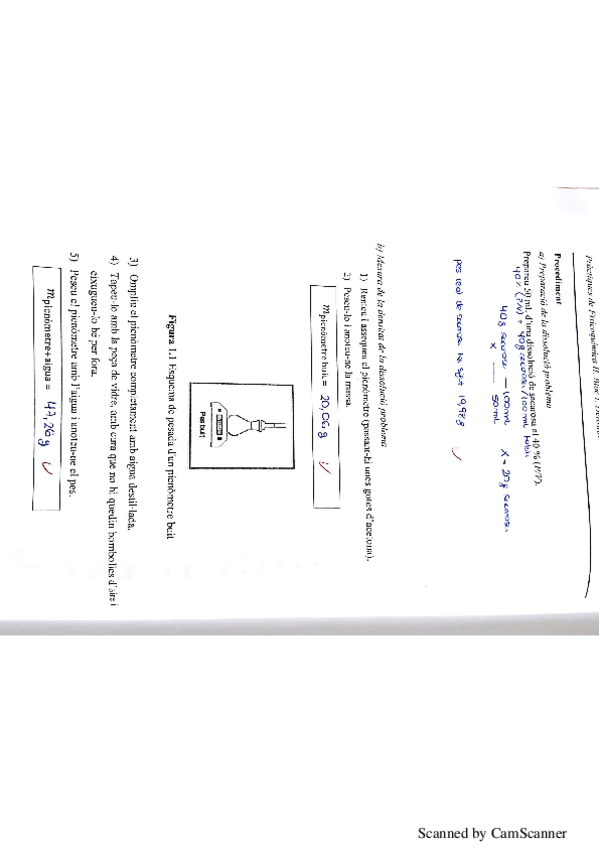 Pràctiques de Fisicoquímica II. Bloc 1.
Procediment
a) Preparació de la dissolució problema
Prepareu 50 mL d'una dissolució de sacarosa al 40 % (P/V).
40% (P/V) = 40g sacarosa/100 mL
40g sacarosa — 100mL
x — 50mL
x = 20g sacarosa
pes real de sacarosa ha sigut 19,98g ✓
b) Mesura de la densitat de la dissolució problema
1) Renteu i assequeu el picnòmetre (passant-hi unes gotes d'acetona).
2) Peseu-lo i anoteu-ne la massa.
mpicnòmetre buit = 20,06g ✓
Pes buit
Figura 1.1 Esquema de pesada d'un picnòmetre buit
3) Ompliu el picnòmetre completament amb aigua destil·lada.
4) Tapeu-lo amb la peça de vidre, amb cura que no hi quedin bombolles d'aire i
eixugueu-lo bé per fora.
5) Peseu el picnòmetre amb l'aigua i anoteu-ne el pes.
mpicnòmetre+aigua = 47,26g ✓
Scanned by CamScanner